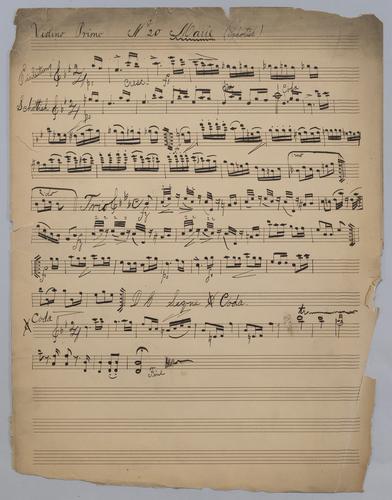 Violino Primo Nº 20 Marie (Schottisch)
Cresc.
Schottisch
Coda
Trio
D S Segno Coda
Coda
tr
Fine